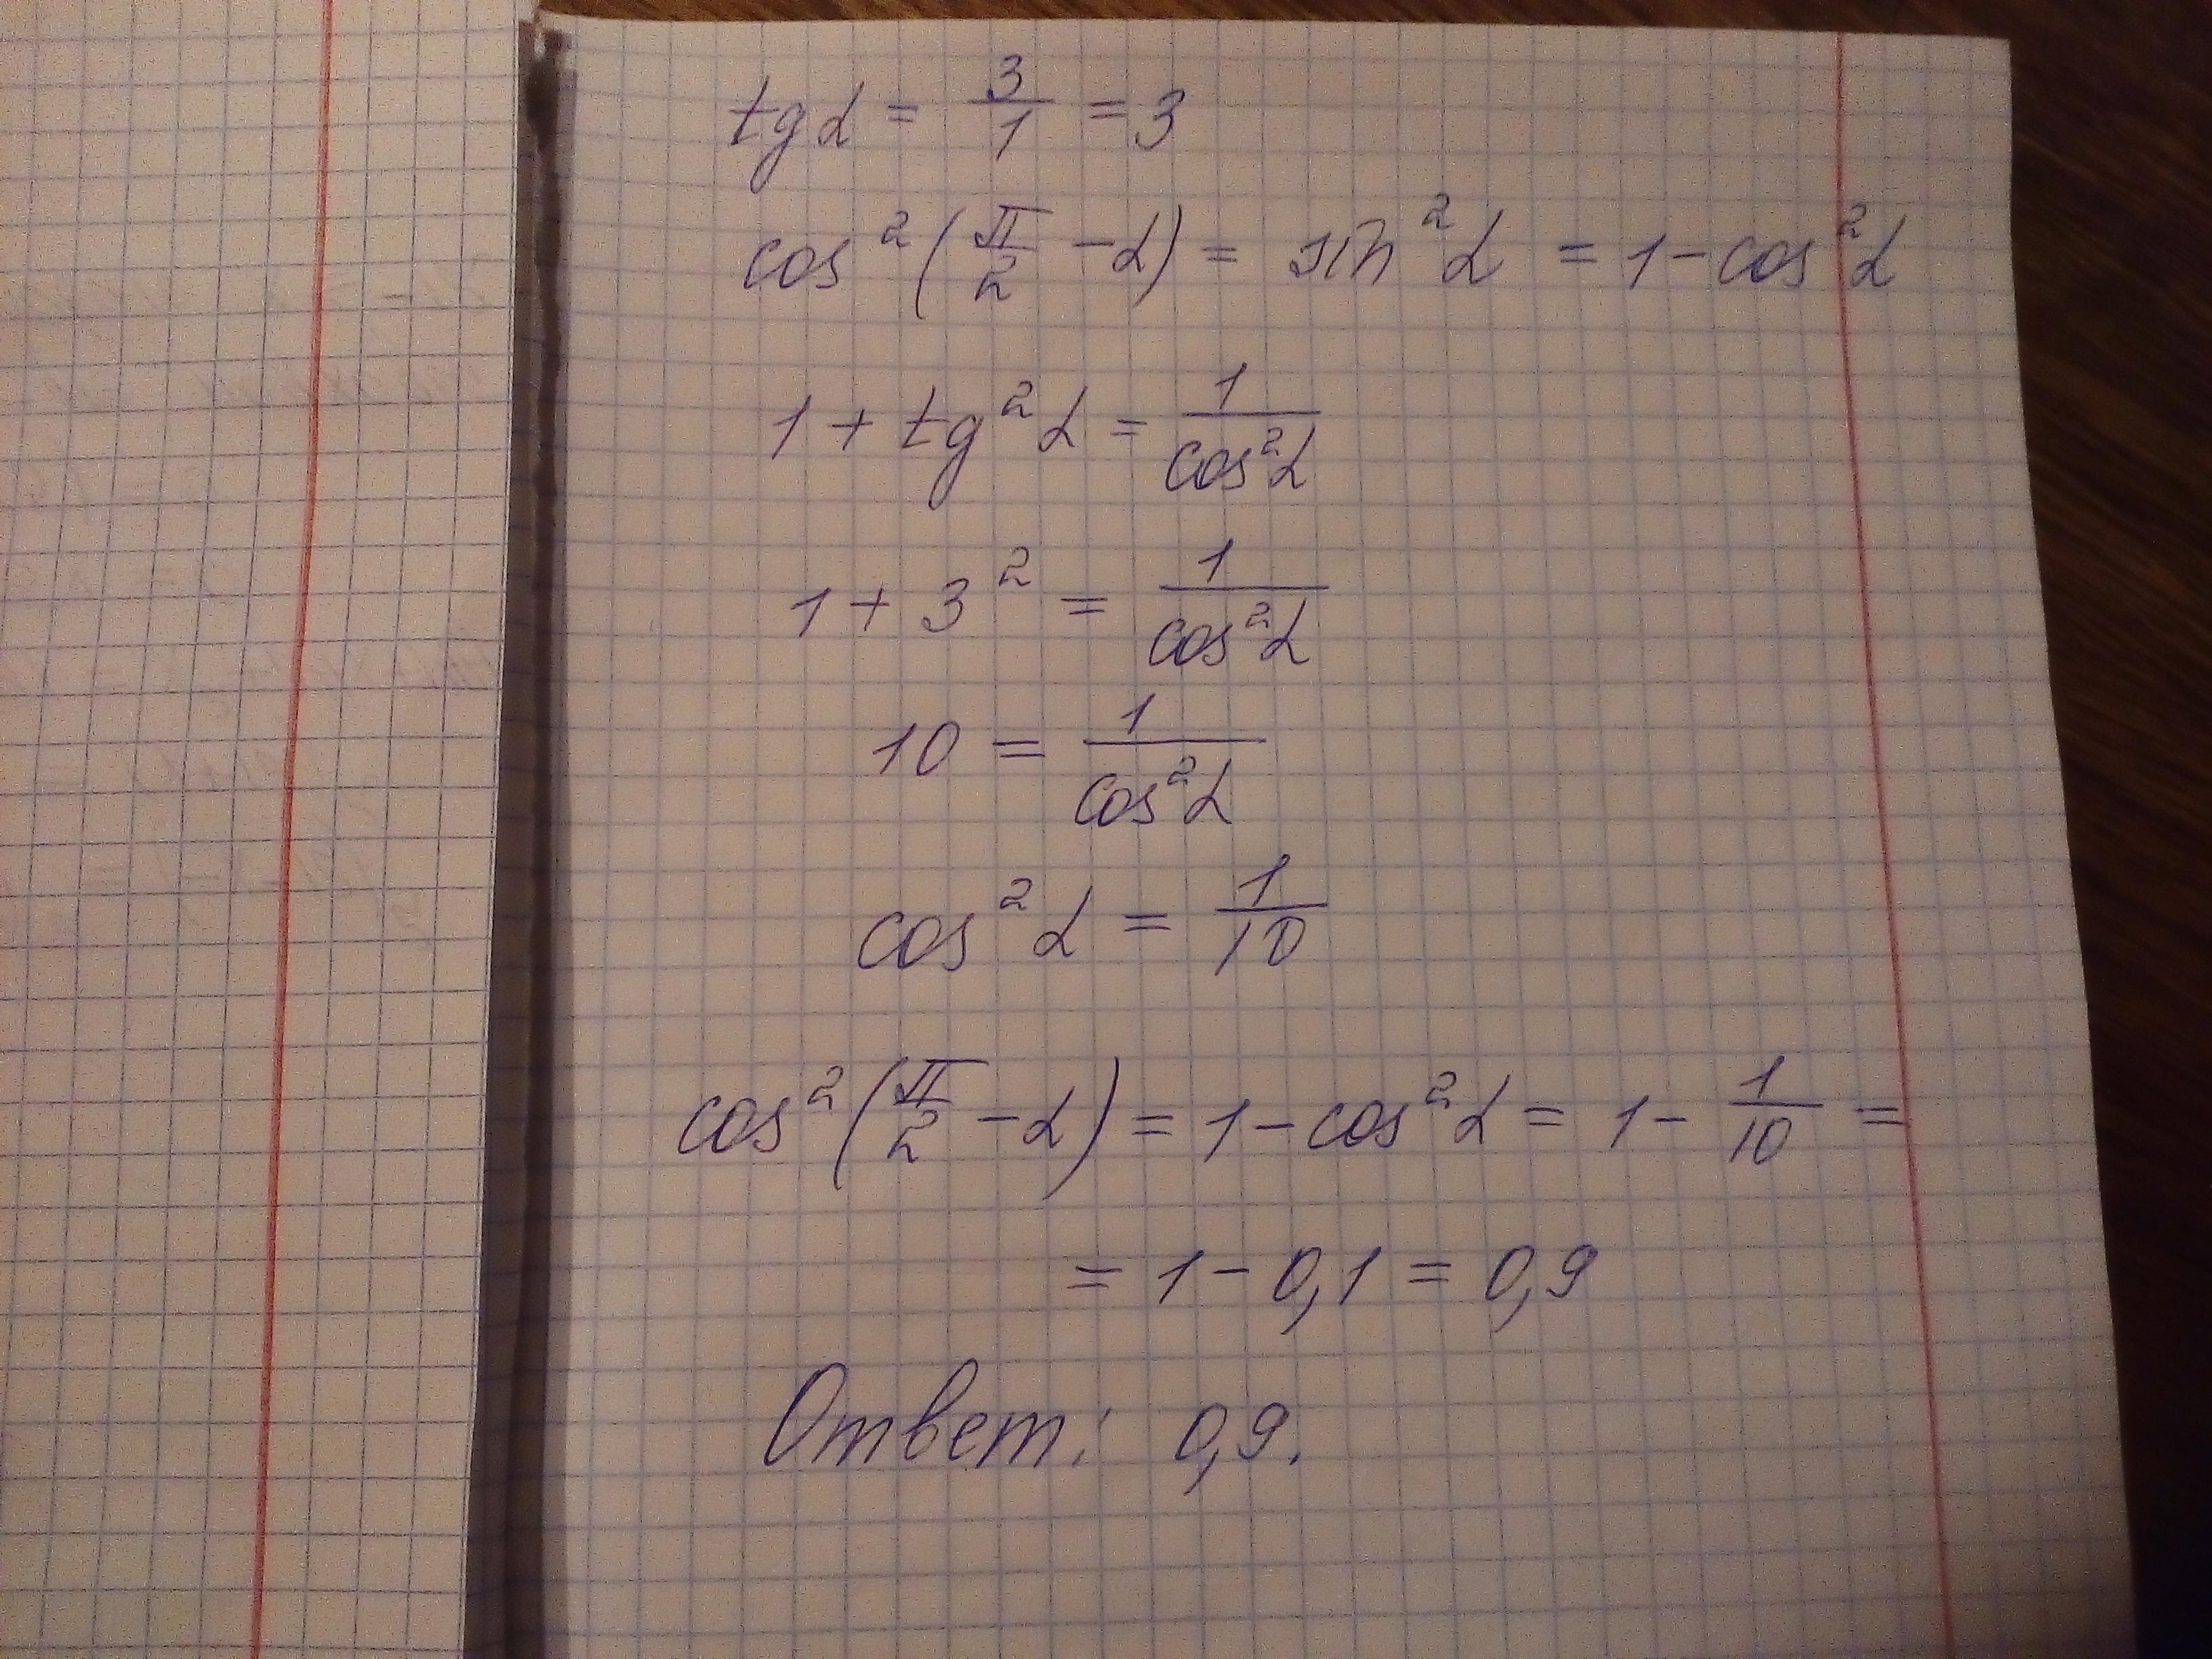 tg α = 3/1 = 3
cos²(π/2 - α) = sin²α = 1 - cos²α
1 + tg²α = 1/cos²α
1 + 3² = 1/cos²α
10 = 1/cos²α
cos²α = 1/10
cos²(π/2 - α) = 1 - cos²α = 1 - 1/10 =
= 1 - 0,1 = 0,9
Ответ: 0,9.